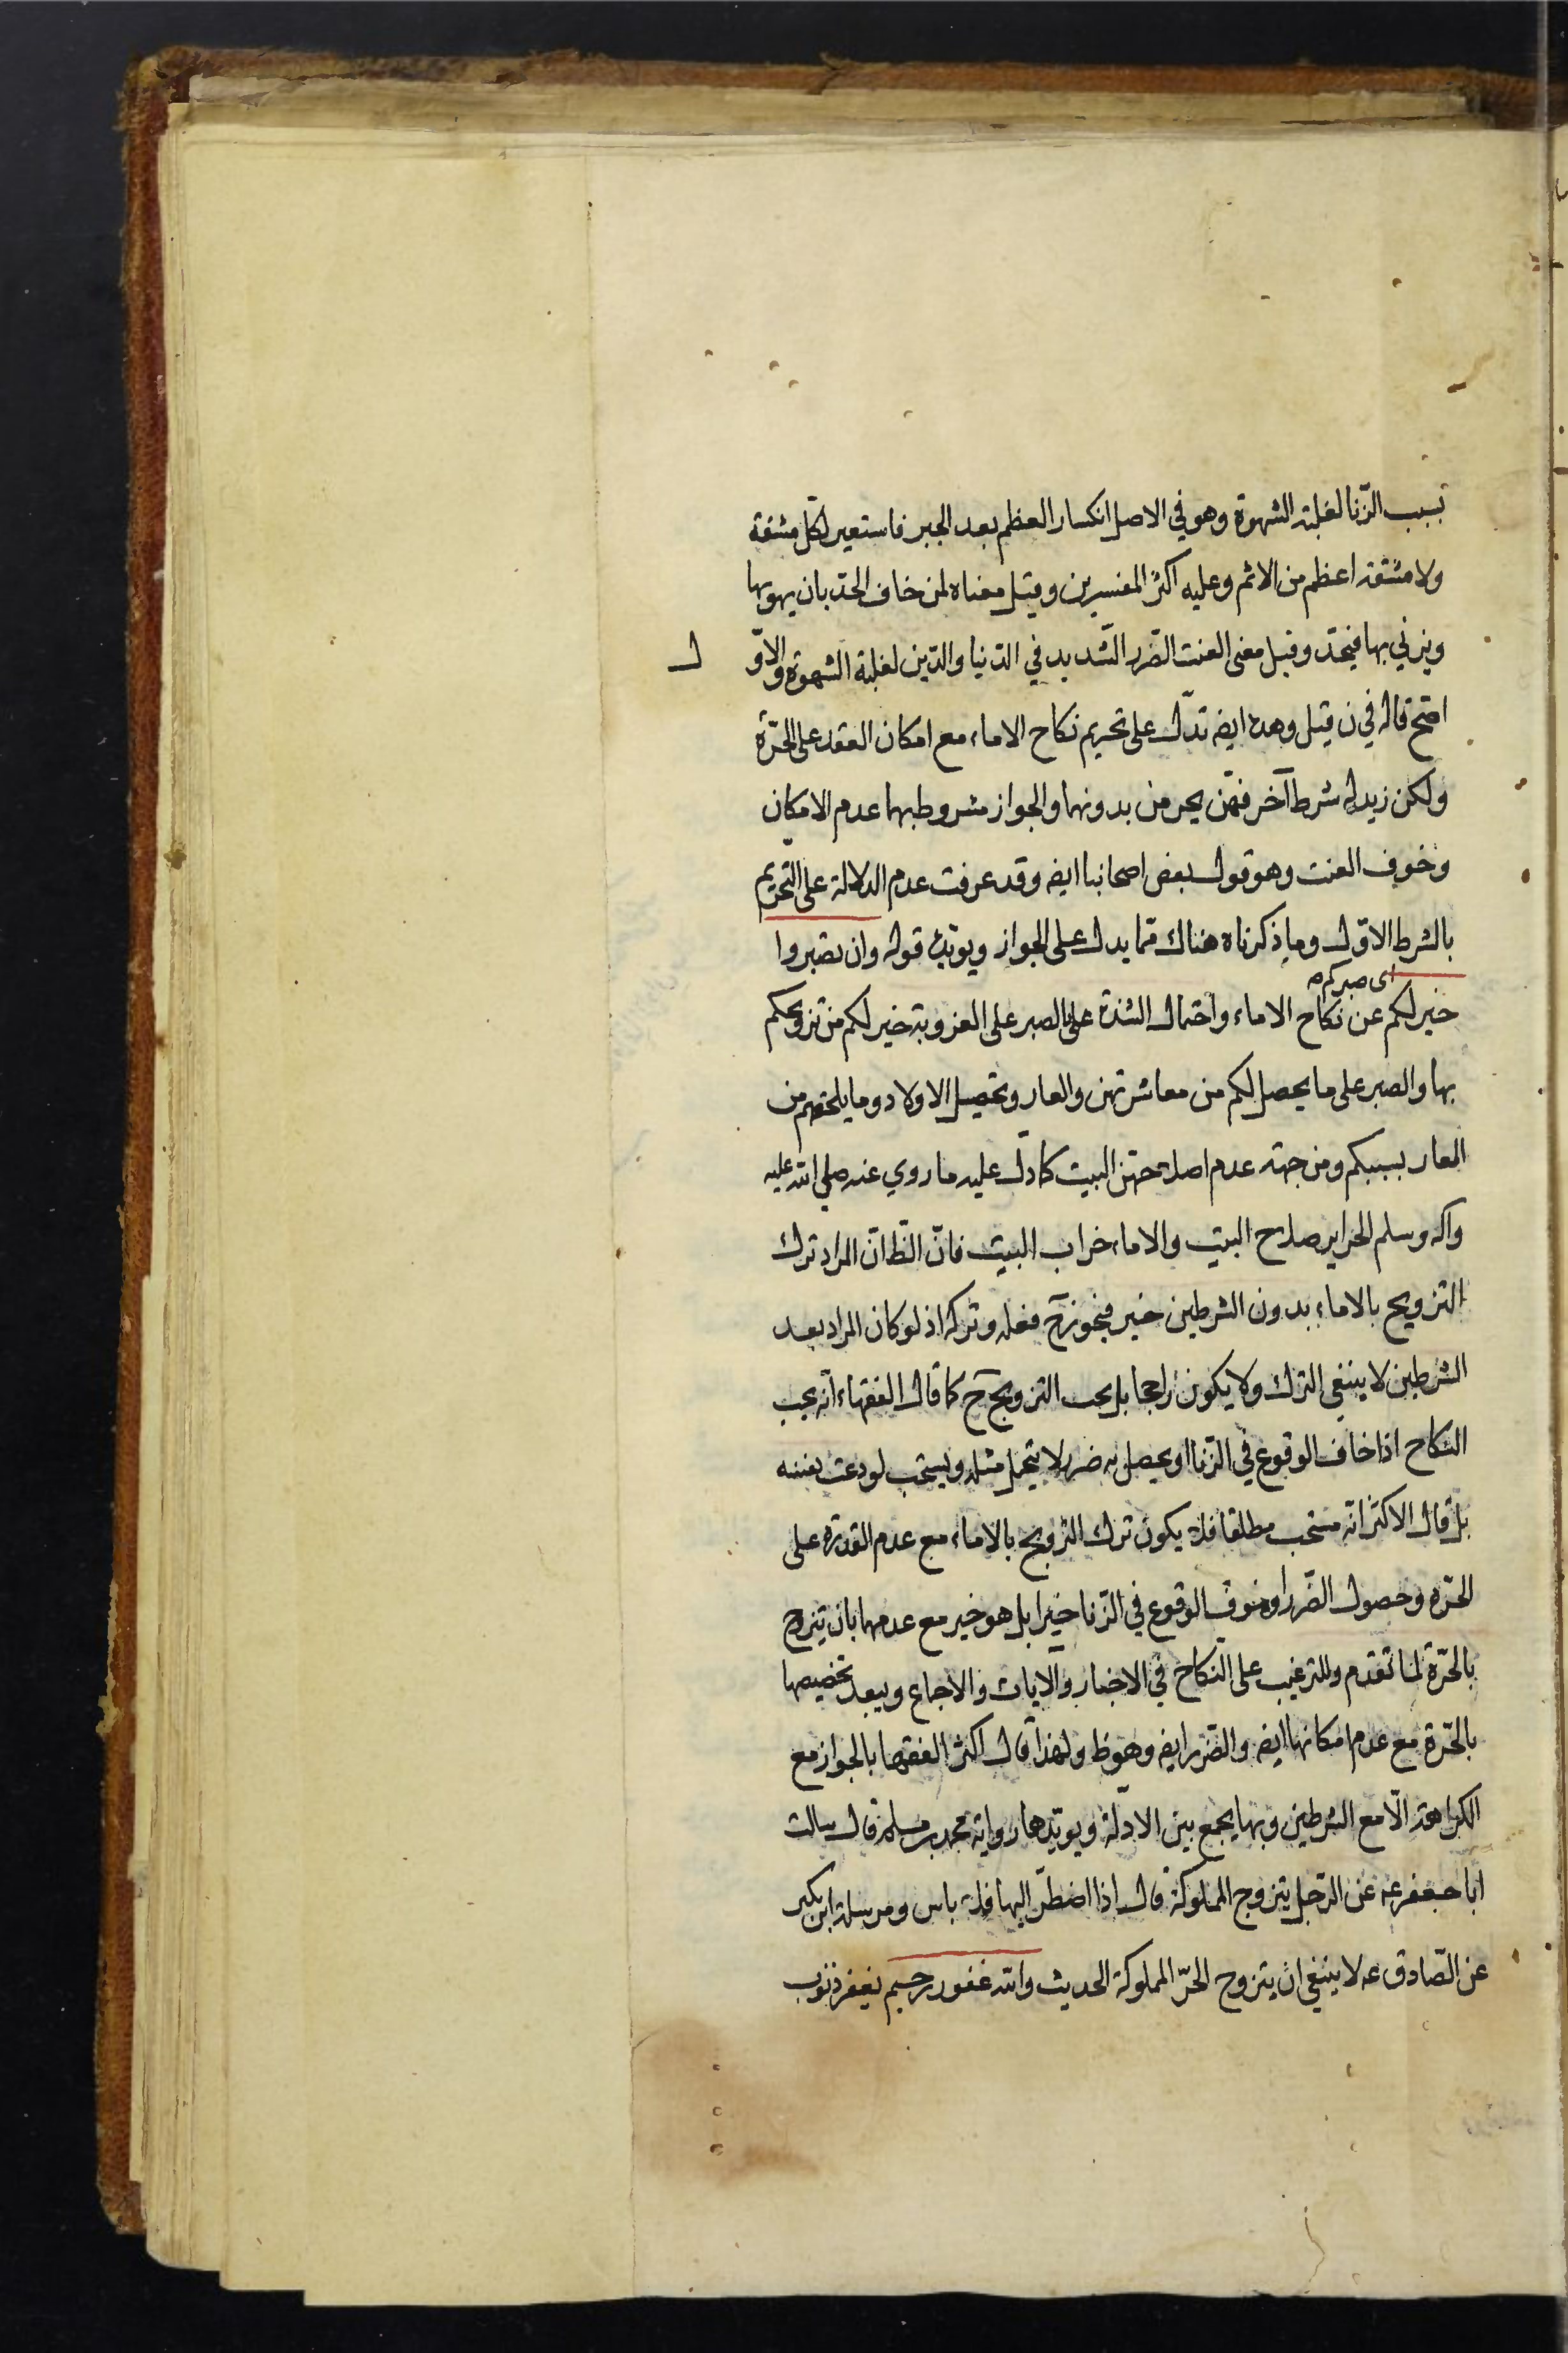 بسبب الزّنا لغلبة الشهوة وهو في الاصل انكسار العظم بعد الجبر فاستعير لكلّ مشقة
ولا مشقة اعظم من الاثم وعليه اكثر المفسرين وقيل معناه لمن خاف الحدّ بان يهويها
ويزني بها فيحدّ وقيل معنى العنت الضّرر الشّديد في الدّنيا والدّين لغلبة الشهوة والاوّل
اصحّ قاله في ن قيل وهذه ايضه تدّل على تحريم نكاح الاماء مع امكان العقد على الحرّة
ولكن زيد له شرط آخر فهنّ يحرمن بدونهما والجواز مشروط بهما عدم الامكان
وخوف العنت وهو قول بعض اصحابنا ايضه وقد عرفت عدم الدلالة على التحريم
بالشرط الاوّل وما ذكرناه هناك ممّا يدل على الجواز ويويّده قوله وان تصبروا
اى صبركم صه
خير لكم عن نكاح الاماء واحتمال الشدة على الصبر على العزوبة خير لكم من تزويجكم
بها والصبر على ما يحصل لكم من معاشرتهن والعار وتحصيل الاولاد وما يلحقهم من
العار بسببكم ومن جهة عدم اصلاحهنّ البيت كما دلّ عليه ما روي عنه صلى الله عليه
وآله وسلم الحراير صلاح البيت والاماء خراب البيت فانّ الظّ انّ المراد ترك
التزويج بالاماء بدون الشرطين خير فيجوز ح فعله وتركه اذ لو كان المراد بعد
الشرطين لا ينبغي الترك ولا يكون راجحا بل يجب التزويج ح كما قال الفقهاء انّه يجب
النكاح اذا خاف الوقوع في الزّنا او يحصل به ضرر لا يتحمل مثله ويستحب لو دعت نفسه
بل قال الاكثر انّه مستحب مطلقا فلا يكون ترك التزويج بالاماء مع عدم القدرة على
الحرّه وحصول الضّرر او خوف الوقوع في الزّنا خيرا بل هو خير مع عدمهما بان يتزوج
بالحرّة لما تقدم وللترغيب على النّكاح في الاخبار والآيات والاجماع ويبعد تخصيصها
بالحرّة مع عدم امكانها ايضه والضّرر ايضه وهو ظ ولهذا قال اكثر الفقها بالجواز مع
الكراهة الّا مع الشرطين وبها يجمع بين الادلّة ويويّدها رواية محمد بن مسلم قال سالت
ابا جعفر عه عن الرّجل يتزوج المملوكة قال اذا اضطرّ اليها فلا باس ومرسلة ابن بكير
عن الصّادق عه لا ينبغي ان يتزوج الحرّ المملوكة الحديث والله غفور رحيم يغفر ذنوب